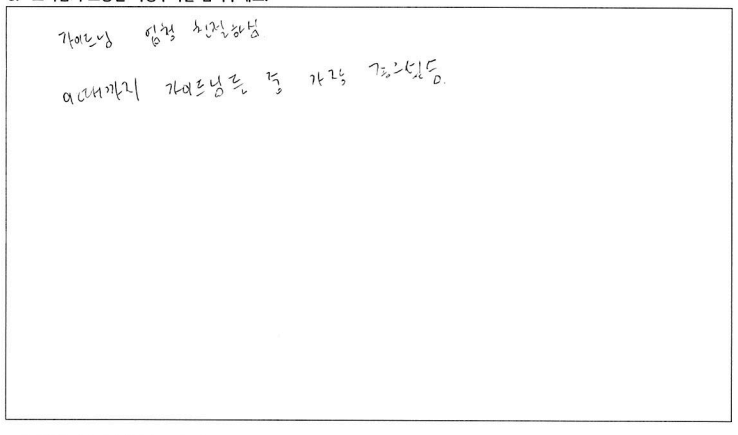 가이드님 엄청 친절하심
이때까지 가이드님들 중 가장